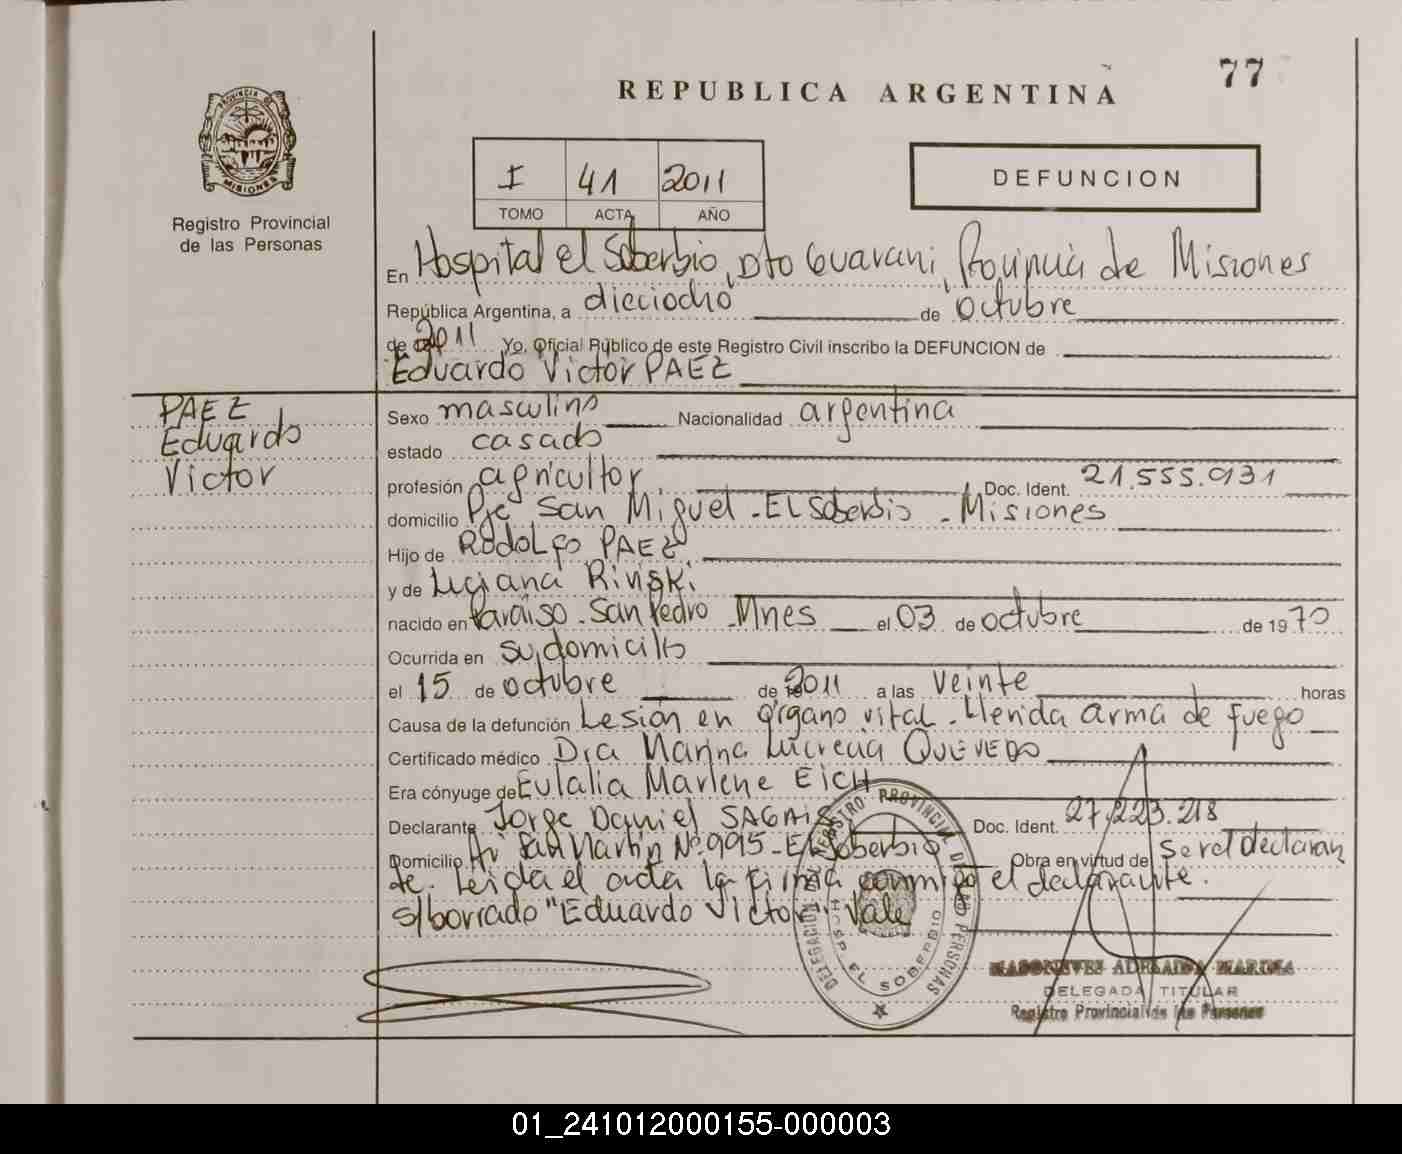 77
REPUBLICA ARGENTINA
PROVINCIA DE
MISIONES
Registro Provincial
de las Personas
I 41 2011
TOMO ACTA AÑO
DEFUNCION
En Hospital el Soberbio, Dto Guarani, Provincia de Misiones
República Argentina, a dieciocho de octubre
de 2011 Yo, Oficial Público de este Registro Civil inscribo la DEFUNCION de
Eduardo Victor PAEZ
PAEZ
Eduardo
Victor
Sexo masculino Nacionalidad argentina
estado casado
profesión agricultor Doc. Ident. 21.555.931
domicilio Pje San Miguel - El Soberbio - Misiones
Hijo de Rodolfo PAEZ
y de Luciana Rinski
nacido en Paraiso - San Pedro - Mnes el 03 de octubre de 1970
Ocurrida en su domicilio
el 15 de octubre de 2011 a las veinte horas
Causa de la defunción Lesión en organo vital - Herida arma de fuego
Certificado médico Dra Marina Lucrecia QUEVEDO
Era cónyuge de Eulalia Marlene EICH
Declarante Jorge Daniel Doc. Ident. 27,223.218
Domicilio Av San Martin Nº 995 - El Soberbio Obra en virtud de ser el declaran
te. Leida el acta la firma conmigo el declarante.
s/borrado "Eduardo Victor": Vale
DELEGACION REGISTRO PROVINCIAL DE LAS PERSONAS
HOSP. EL SOBERBIO
ADELAIDA MARINA
DELEGADA TITULAR
Registro Provincial de las Personas
01_241012000155-000003